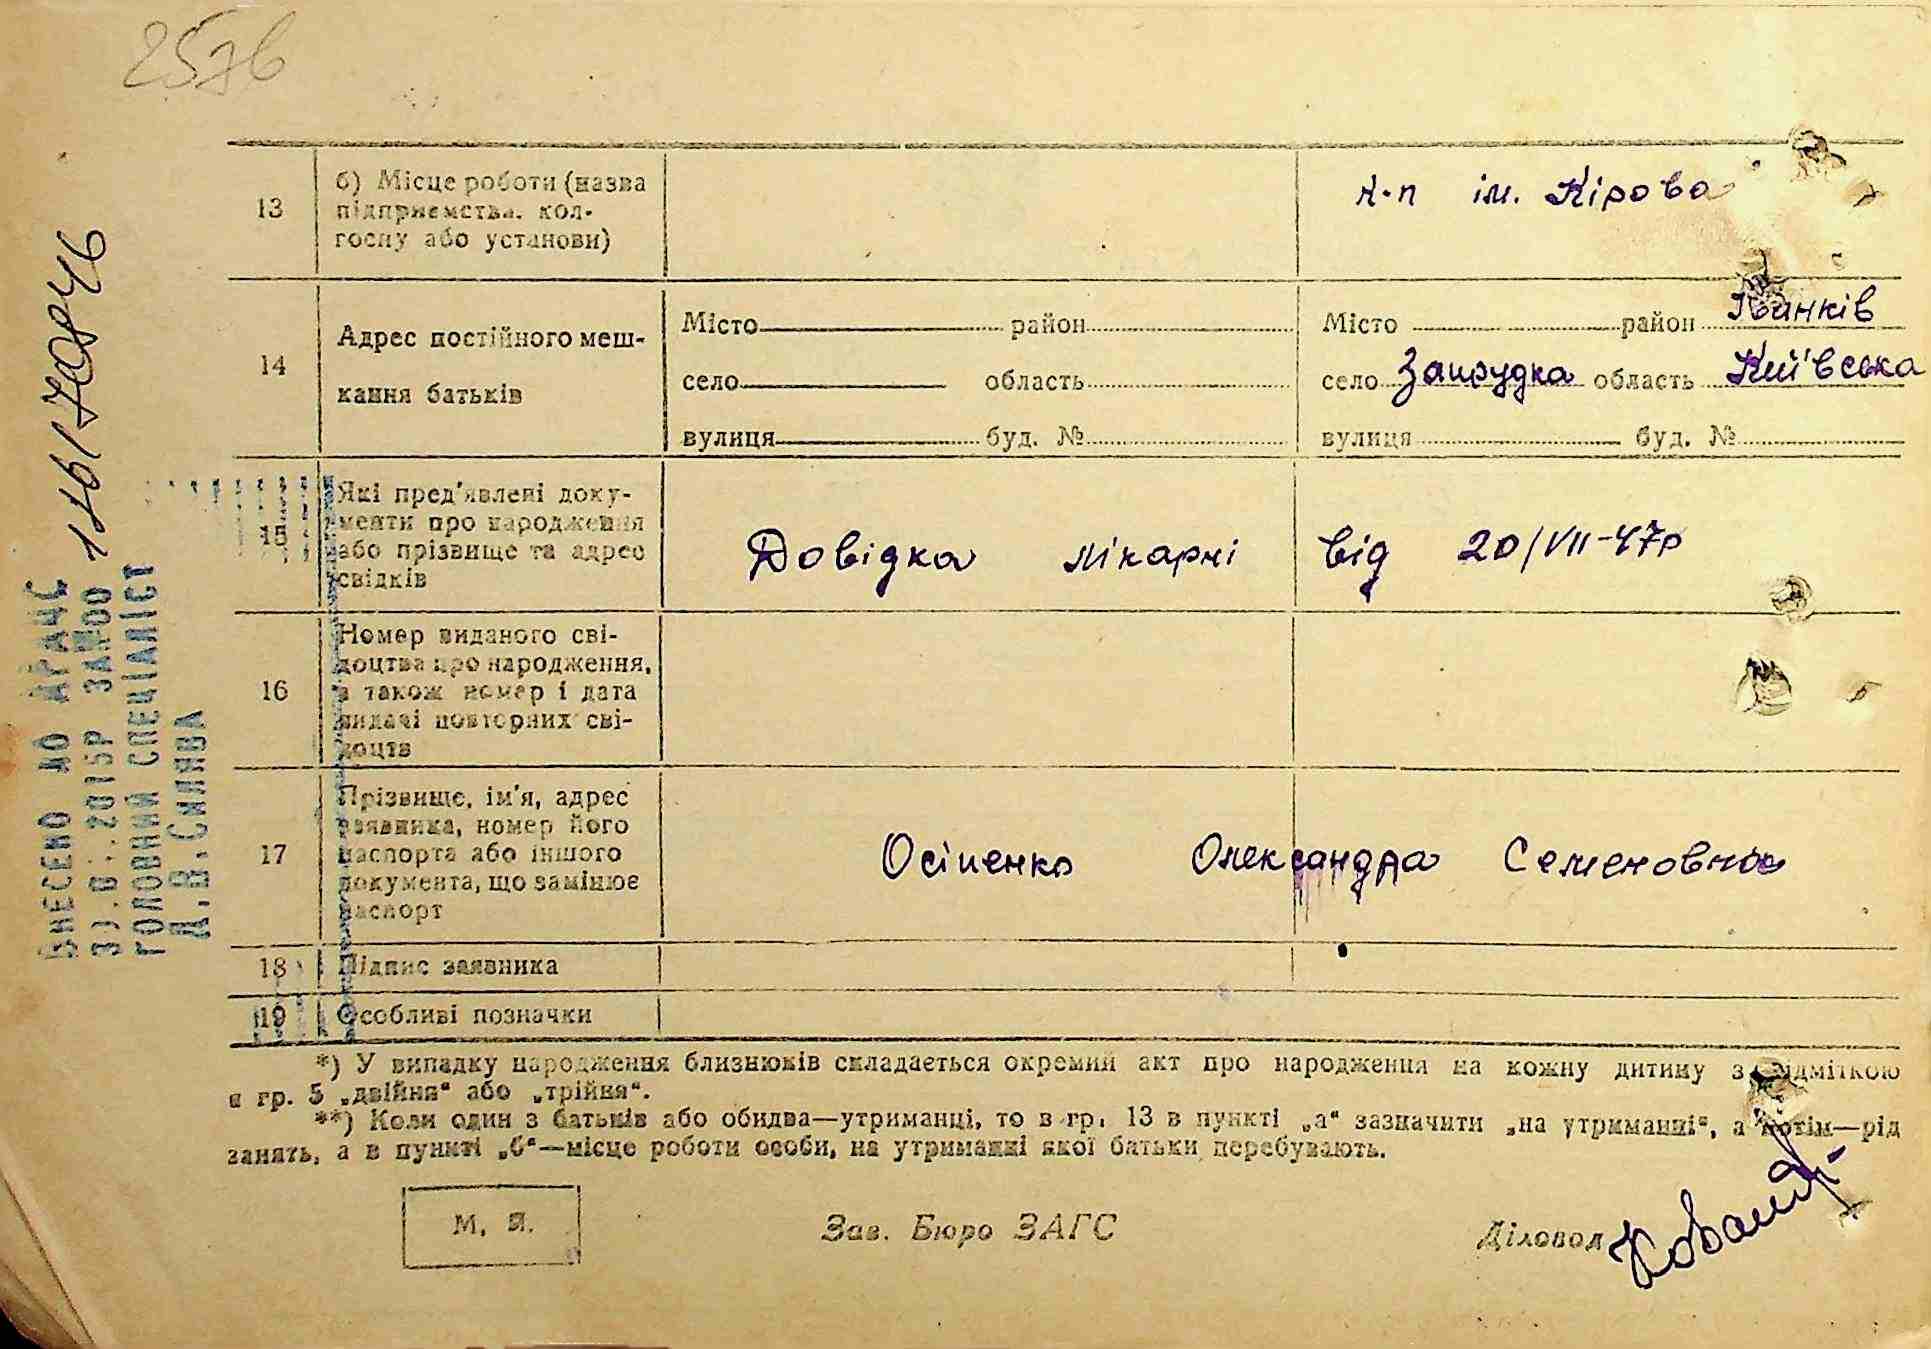 257б
13
б) Місце роботи (назва
підприємства, кол-
госпу або установи)
к-п ім. Кірова
14
Адрес постійного меш-
кання батьків
Місто район
село область
вулиця буд. №
Місто район Іванків
село Запрудка область Київська
вулиця буд. №
15
Які пред'явлені доку-
менти про народження
або прізвище та адрес
свідків
Довідка лікарні від 20/VII-47р
16
Номер виданого сві-
доцтва про народження,
а також номер і дата
видачі повторних сві-
доцтв
17
Прізвище, ім'я, адрес
заявника, номер його
паспорта або іншого
документа, що замінює
паспорт
Осіпенко Олександра Семеновна
18
Підпис заявника
19
Особливі позначки
*) У випадку народження близнюків складається окремий акт про народження на кожну дитину з відміткою
в гр. 5 „двійня“ або „трійня“.
**) Коли один з батьків або обидва—утриманці, то в гр. 13 в пункті „а“ зазначити „на утриманні“, а потім—рід
занять, а в пункті „б“—місце роботи особи, на утриманні якої батьки перебувають.
М. П.
Зав. Бюро ЗАГС
Діловод
ВНЕСЕНО ДО ДРАЦС
2015Р ЗА№00
ГОЛОВНИЙ СПЕЦІАЛІСТ
Д.В.СИЛЯВА